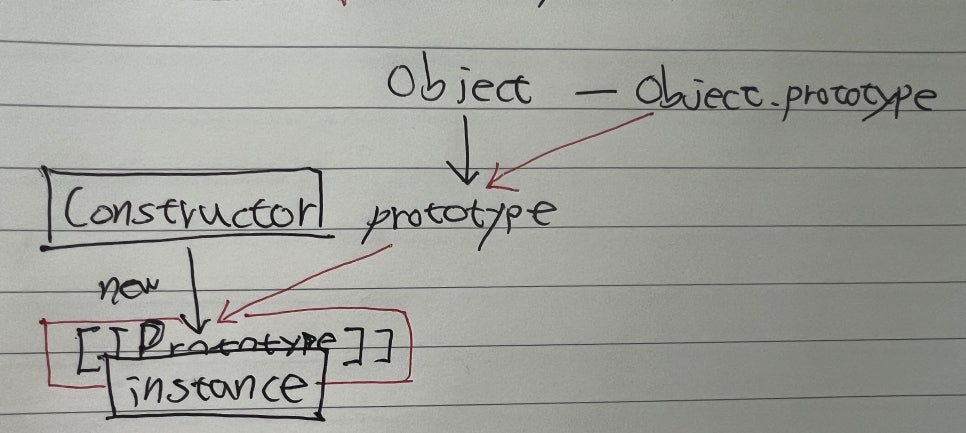 Object — Object.prototype
Constructor prototype
new
[[Prototype]]
instance